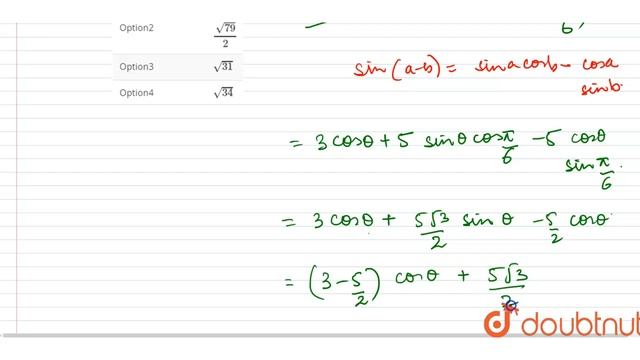 Option2 √79/2
Option3 √31
Option4 √34
6
sin(a-b) = sina cosb - cosa
sinb.
= 3 cosθ + 5 sinθ cosπ/6 - 5 cosθ
sinπ/6.
= 3 cosθ + 5√3/2 sinθ - 5/2 cosθ
= (3 - 5/2) cosθ + 5√3/2
doubtnut